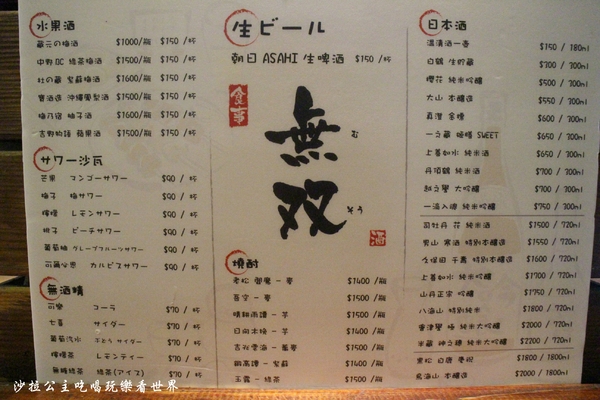 水果酒
蔵元の梅酒 $1000/瓶 $150 /杯
中野BC 綠茶梅酒 $1500/瓶 $150 /杯
杜の蔵 紫蘇梅酒 $1600/瓶 $150 /杯
寶酒造 沖縄鳳梨酒 $1500/瓶 $150 /杯
梅乃宿 柚子酒 $1600/瓶 $150 /杯
吉野物語 蘋果酒 $1500/瓶 $150 /杯
サワー沙瓦
芒果 マンゴーサワー $90 / 杯
梅子 梅サワー $90 / 杯
檸檬 レモンサワー $90 / 杯
桃子 ピーチサワー $90 / 杯
葡萄柚 グレープフルーツサワー $90 / 杯
可爾必思 カルピスサワー $90 / 杯
無酒精
可樂 コーラ $70 / 杯
七喜 サイダー $70 / 杯
葡萄汽水 ぶどう サイダー $70 / 杯
檸檬茶 レモンティー $70 / 杯
無糖綠茶 綠茶(アイス) $70 / 杯
生ビール
朝日 ASAHI 生啤酒 $150 /杯
食事
無双
むそう
酒
燒酎
老松 御慶 - 麥 $1400 /瓶
百空 - 麥 $1500 /瓶
晴耕雨讀 - 芋 $1500 /瓶
日向木挽 - 芋 $1400 /瓶
吉兆雲海 - 蕎麥 $1500 /瓶
鍛高譚 - 紫蘇 $1400 /瓶
玉露 - 綠茶 $1500 /瓶
日本酒
溫清酒一壺 $150 / 180ml
白鶴 生貯蔵 $300 / 300ml
櫻花 純米吟釀 $500 / 300ml
大山 本釀造 $550 / 300ml
真澄 金標 $600 / 300ml
一之蔵 SWEET $650 / 300ml
上善如水 純米酒 $650 / 300ml
丹頂鶴 純米酒 $700 / 300ml
越之譽 大吟釀 $700 / 300ml
一滴入魂 純米吟釀 $750 / 300ml
司牡丹 花 純米酒 $1500 / 720ml
男山 寒酒 特別本釀造 $1550 / 720ml
久保田 千壽 特別本釀造 $1600 / 720ml
上善如水 純米吟釀 $1700 / 720ml
山丹正宗 吟釀 $1750 / 720ml
八海山 特別純米 $1800 / 720ml
會津譽 極 純米大吟釀 $2000 / 720ml
米蔵 純米大吟釀 $2700 / 720ml
黑松 白鹿 $1800 / 1800ml
鳥海山 本釀造 $2000 / 1800ml
沙拉公主吃喝玩樂看世界